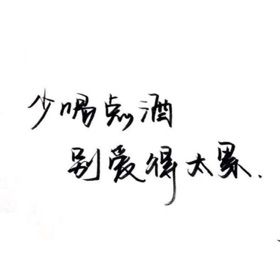 少喝点酒
别爱得太累.